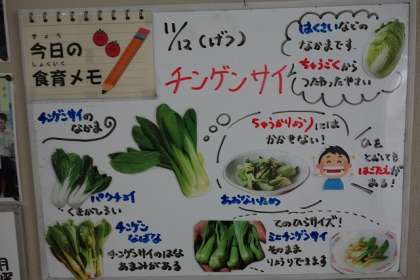 きょう
今日の
しょくいく
食育メモ
11/12(げつ)
チンゲンサイ
はくさいなどの
なかまです。
ちゅうごくから
つたわったやさい
チンゲンサイの
なかま
パクチョイ
くきがしろい
チンゲン
なばな
チンゲンサイのはな
あまみがある
ちゅうかりょうりには
かかせない!
あおないため
ひを
とおしても
はごたえが
ある!
てのひらサイズ!
ミニチンゲンサイ
そのまま
りょうりできます